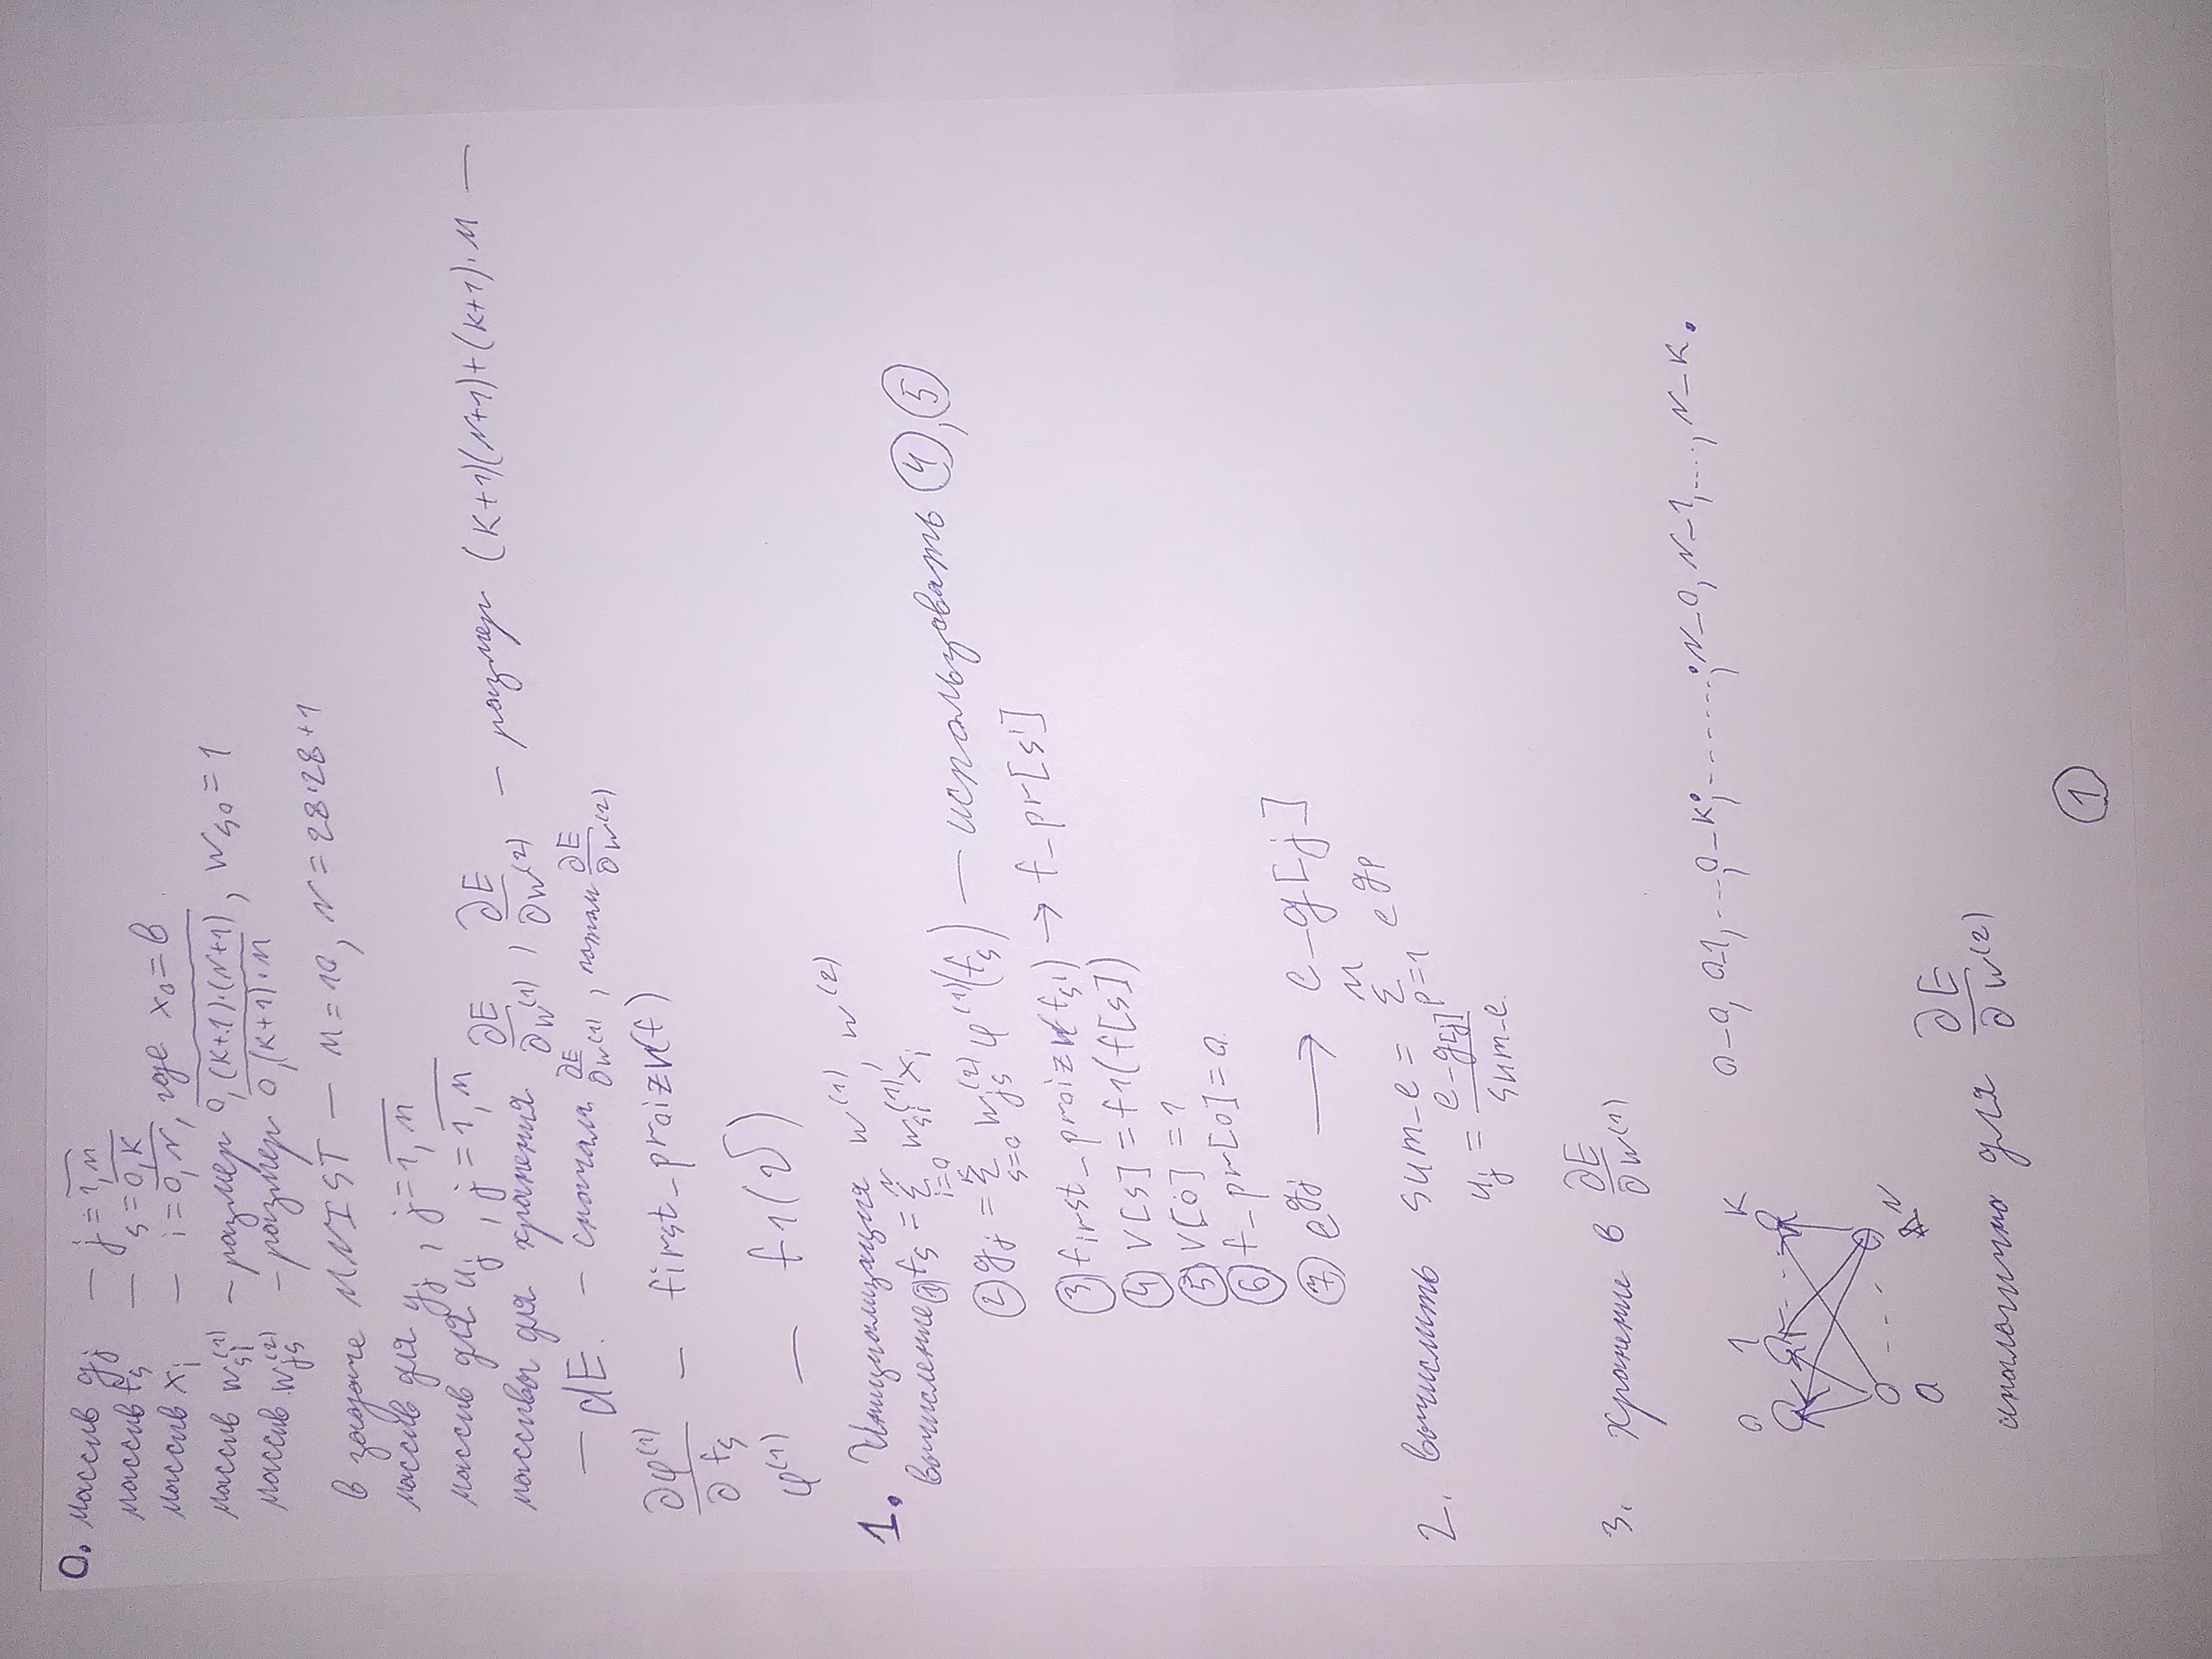 0. массив gj — j = 1,M
массив fs — s = 0,K
массив xi — i = 0,N, где x0 = в
массив wsi(1) — размер 0,(K+1)·(N+1), ws0 = 1
массив wjs(2) — размер 0,(K+1)·M
в задаче MNIST — M = 10, N = 28·28+1
массив для yj, j = 1,M
массив для uj, j = 1,M
массивы для хранения ∂E/∂w(1), ∂E/∂w(2) — размер (K+1)(N+1)+(K+1)·M —
— dE. — сначала ∂E/∂w(1), потом ∂E/∂w(2)
∂φ(1)/∂fs — first_proizv(f)
φ(1) — f1(v)
1. Инициализация w(1), w(2)
вычисление ① fs = Σ i=0 N wsi(1) xi
② gj = Σ s=0 K wjs(2) φ(1)(fs) — использовать ④, ⑤
③ first_proizv(fs') → f_pr[s']
④ v[s] = f1(f[s])
⑤ v[0] = 1
⑥ f_pr[0] = 0
⑦ e^gj → e_g[j]
2. вычислить sum_e = Σ p=1 M e^gp
uj = e_g[j]/sum_e.
3. хранение в ∂E/∂w(1)
0_0, 0_1, ..., 0_K; .......; N_0, N_1, ...., N_K.
0 1 K
0 N
аналогично для ∂E/∂w(2)
①